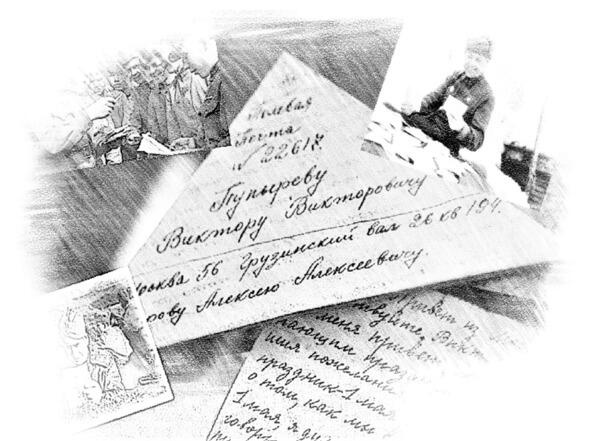 Полевая
Почта
№ 22617.
Пупыреву
Виктору Викторовичу
Москва 56 Грузинский вал 26 кв 194.
рову Алексею Алексеевичу.
Привет из
вствуйте, Викт
меня привет
ающим праз
шия пожелани
праздник-1 мая
о том, как мы
1 мая, я ду
говор